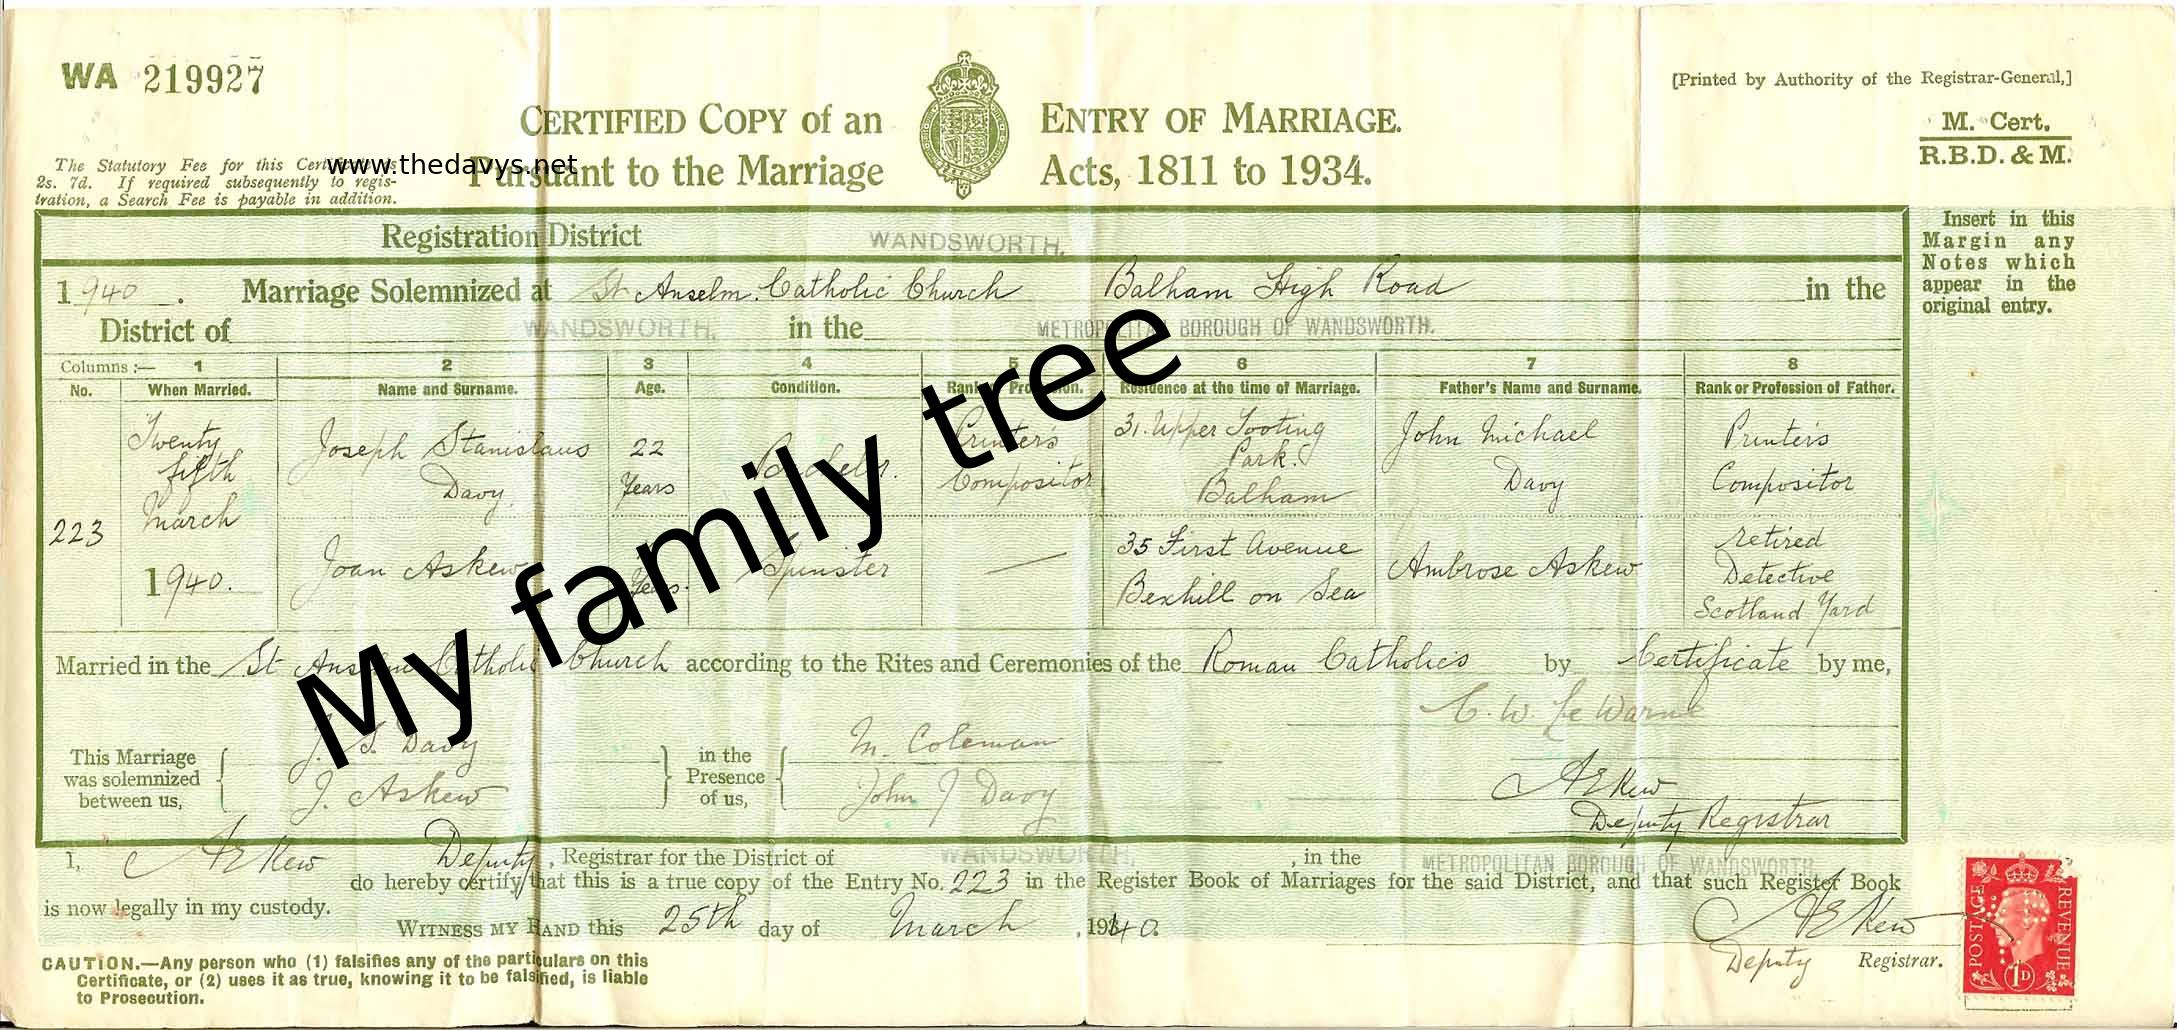 WA 219927
[Printed by Authority of the Registrar-General,]
CERTIFIED COPY of an ENTRY OF MARRIAGE.
Pursuant to the Marriage Acts, 1811 to 1934.
M. Cert.
R.B.D. & M.
The Statutory Fee for this Certificate is
2s. 7d. If required subsequently to regis-
tration, a Search Fee is payable in addition.
www.thedavys.net
Insert in this
Margin any
Notes which
appear in the
original entry.
Registration District WANDSWORTH.
1940. Marriage Solemnized at St Anselm. Catholic Church Balham High Road in the
District of WANDSWORTH. in the METROPOLITAN BOROUGH OF WANDSWORTH.
Columns :— 1 2 3 4 5 6 7 8
No. When Married. Name and Surname. Age. Condition. Rank or Profession. Residence at the time of Marriage. Father's Name and Surname. Rank or Profession of Father.
223
Twenty
fifth
March
1940.
Joseph Stanislaus
Davy
22
Years
Bachelor.
Printer's
Compositor
31. Upper Tooting
Park.
Balham
John Michael
Davy
Printer's
Compositor
Joan Askew
Years.
Spinster
—
35 First Avenue
Bexhill on Sea
Ambrose Askew
retired
Detective
Scotland Yard
Married in the St Anselm Catholic Church according to the Rites and Ceremonies of the Roman Catholics by Certificate by me,
C. W. Le Warne
This Marriage
was solemnized
between us,
J. S. Davy
J. Askew
in the
Presence
of us,
M. Coleman
John J Davy
Kew
Deputy Registrar
I, Kew Deputy, Registrar for the District of WANDSWORTH, , in the METROPOLITAN BOROUGH OF WANDSWORTH
do hereby certify that this is a true copy of the Entry No. 223 in the Register Book of Marriages for the said District, and that such Register Book
is now legally in my custody.
WITNESS MY HAND this 25th day of March, 1940.
Kew
Deputy Registrar.
CAUTION.—Any person who (1) falsifies any of the particulars on this
Certificate, or (2) uses it as true, knowing it to be falsified, is liable
to Prosecution.
POSTAGE
REVENUE
1D
My family tree